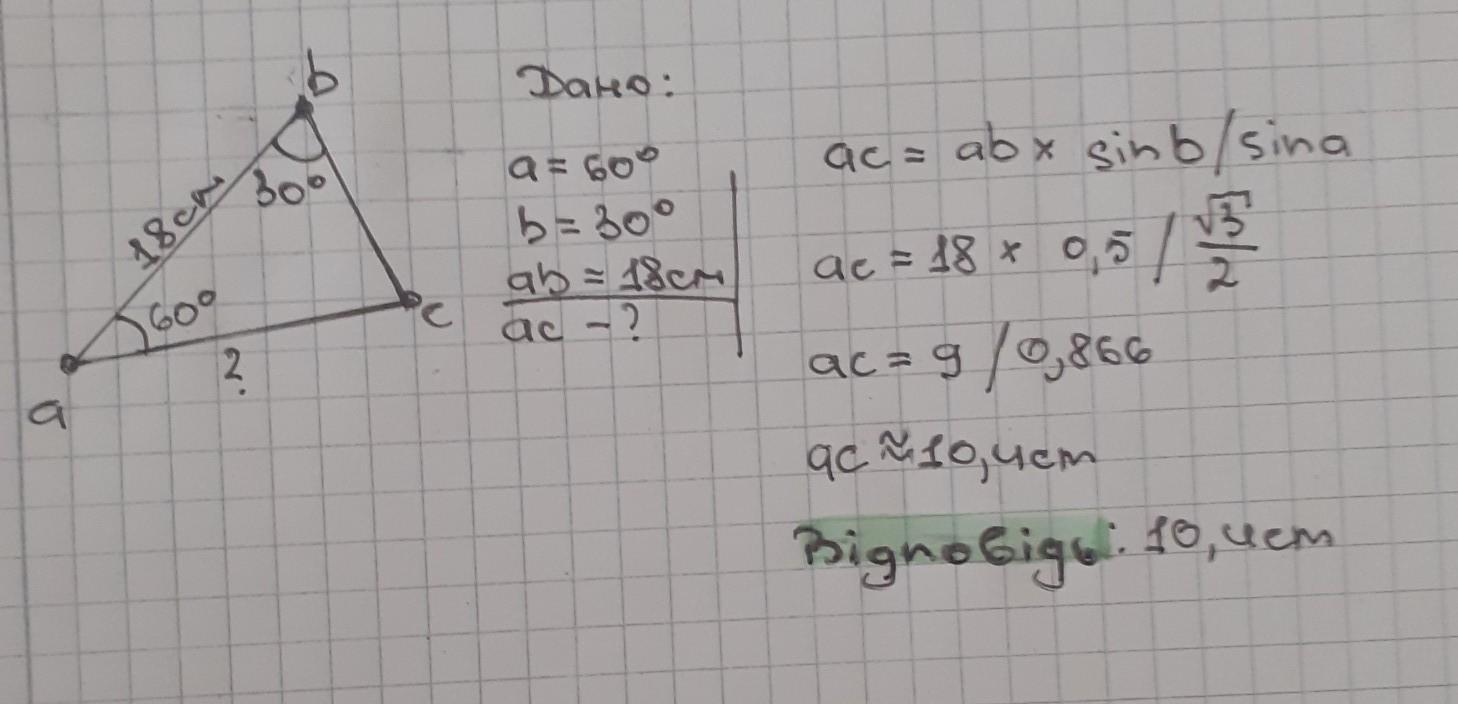 b
18см
30°
60°
c
?
a
Дано:
a = 60°
b = 30°
ab = 18см
ac - ?
ac = ab x sin b / sin a
ac = 18 x 0,5 / √3/2
ac = 9 / 0,866
ac ≈ 10,4 cm
Відповідь: 10,4 cm